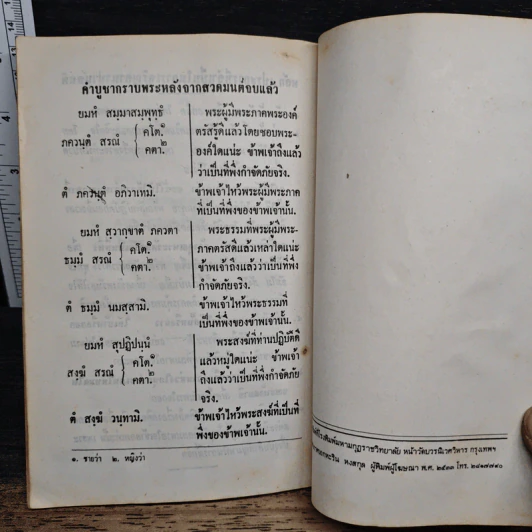 คำบูชากราบพระหลังจากสวดมนต์จบแล้ว
ยมหํ สมฺมาสมฺพุทฺธํ
ภควนฺตํ สรณํ { คโต.๑ คตา.๒
พระผู้มีพระภาคพระองค์
ตรัสรู้ดีแล้ว โดยชอบพระ-
องค์ใดแน่ะ ข้าพเจ้าถึงแล้ว
ว่าเป็นที่พึ่งกำจัดภัยจริง.
ตํ ภควนฺตํ อภิวาเทมิ.
ข้าพเจ้าไหว้พระผู้มีพระภาค
ที่เป็นที่พึ่งของข้าพเจ้านั้น.
ยมหํ สฺวากฺขาตํ ภควตา
ธมฺมํ สรณํ { คโต.๑ คตา.๒
พระธรรมที่พระผู้มีพระ-
ภาคตรัสดีแล้วเหล่าใดแน่ะ
ข้าพเจ้าถึงแล้วว่าเป็นที่พึ่ง
กำจัดภัยจริง.
ตํ ธมฺมํ นมสฺสามิ.
ข้าพเจ้าไหว้พระธรรมที่
เป็นที่พึ่งของข้าพเจ้านั้น.
ยมหํ สุปฏิปนฺนํ
สงฺฆํ สรณํ { คโต.๑ คตา.๒
พระสงฆ์ที่ท่านปฏิบัติดี
แล้วหมู่ใดแน่ะ ข้าพเจ้า
ถึงแล้วว่าเป็นที่พึ่งกำจัดภัย
จริง.
ตํ สงฺฆํ วนฺทามิ.
ข้าพเจ้าไหว้พระสงฆ์ที่เป็นที่
พึ่งของข้าพเจ้านั้น.
๑. ชายว่า ๒. หญิงว่า
โรงพิมพ์มหามกุฏราชวิทยาลัย หน้าวัดบวรนิเวศวิหาร กรุงเทพฯ
หงสกุล ผู้พิมพ์ผู้โฆษณา พ.ศ. ๒๕๓๓ โทร. ๒๘๑๗๗๔๐